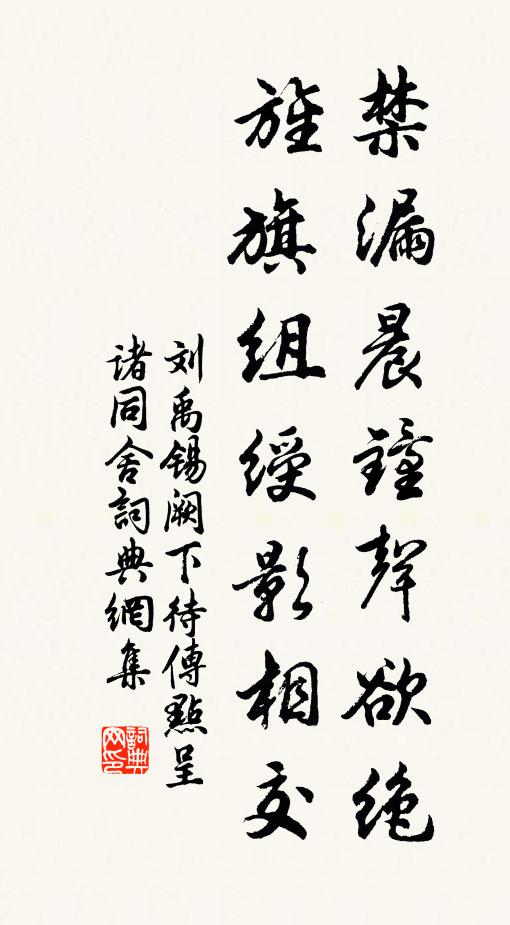 禁漏晨鐘聲欲绝
旌旗组绶影相交
刘禹锡阙下待傳點呈
诸同舍詞典網集
詞典网印